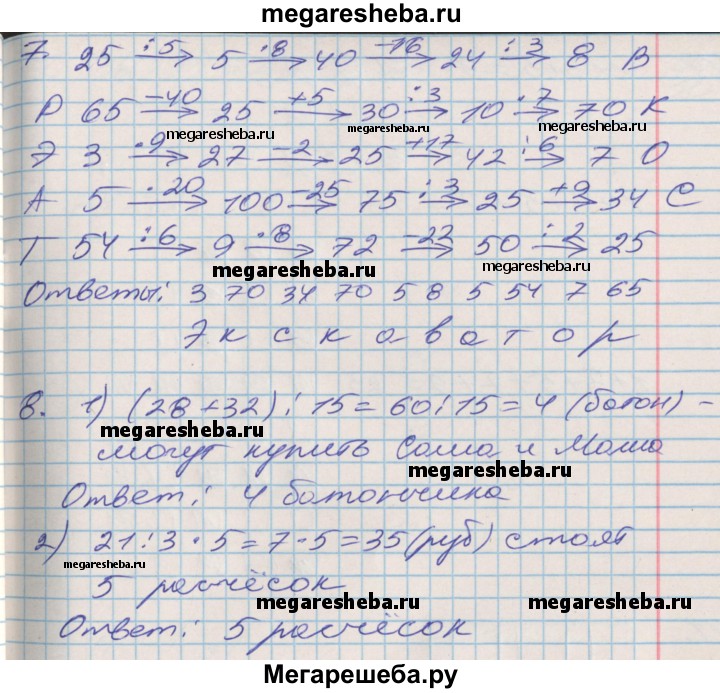 megaresheba.ru
7. 25 :5→ 5 ·8→ 40 -16→ 24 :3→ 8 В
Р 65 -40→ 25 +5→ 30 :3→ 10 ·7→ 70 К
megaresheba.ru megaresheba.ru megaresheba.ru
Э 3 ·9→ 27 -2→ 25 +17→ 42 :6→ 7 О
А 5 ·20→ 100 -25→ 75 :3→ 25 +9→ 34 С
Т 54 :6→ 9 ·8→ 72 -22→ 50 :2→ 25
megaresheba.ru megaresheba.ru
Ответы: 3 70 34 70 5 8 5 54 7 65
Э к с к а в а т о р
8. 1) (28+32):15=60:15=4 (батон) -
megaresheba.ru
могут купить Саша и Маша
megaresheba.ru
Ответ: 4 батончика
2) 21:3·5=7·5=35(руб) стоят
megaresheba.ru
5 расчёсок
megaresheba.ru megaresheba.ru
Ответ: 5 расчёсок
Мегарешеба.ру